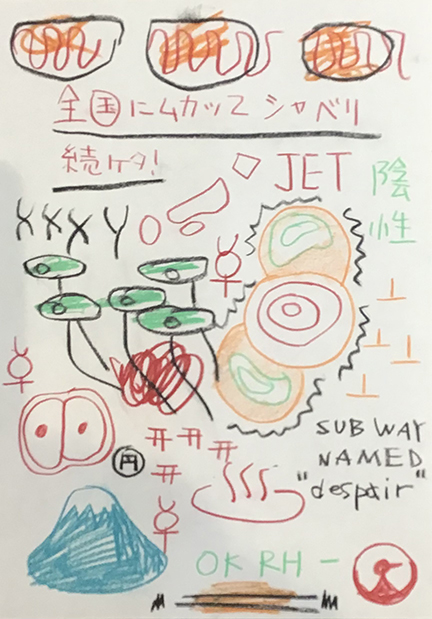 全国ニムカッてシャベリ
続ケタ!
JET
陰性
XXXY
円
SUBWAY
NAMED
"despair"
OK RH -